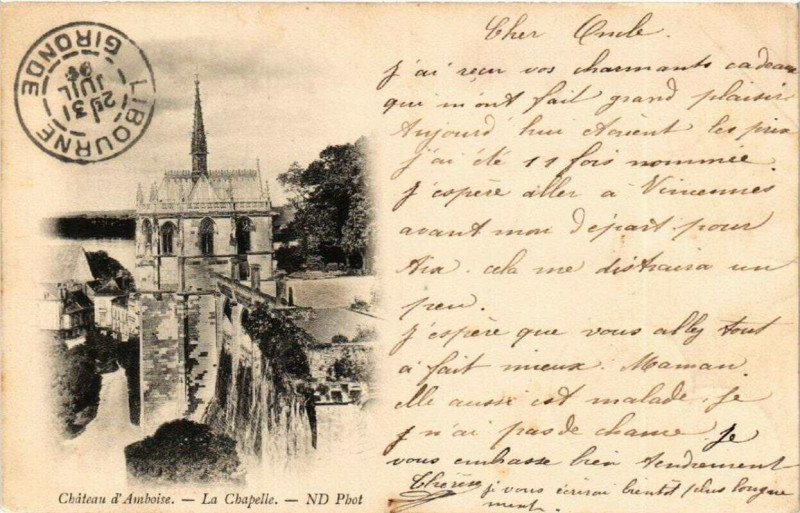 LIBOURNE
GIRONDE
2E
31
JUIL
Cher Oncle.
J'ai reçu vos charmants cadeaux
qui m'ont fait grand plaisir
Aujourd'hui étaient les prix
j'ai été 11 fois nommée.
J'espère aller à Vincennes
avant mon départ pour
Aix. cela me distraira un
peu.
J'espère que vous allez tout
à fait mieux. Maman
elle aussi est malade. Je
n'ai pas de chance. Je
vous embrasse bien tendrement
Thérèse je vous écrirai bientôt plus longue
ment.
Château d'Amboise. — La Chapelle. — ND Phot